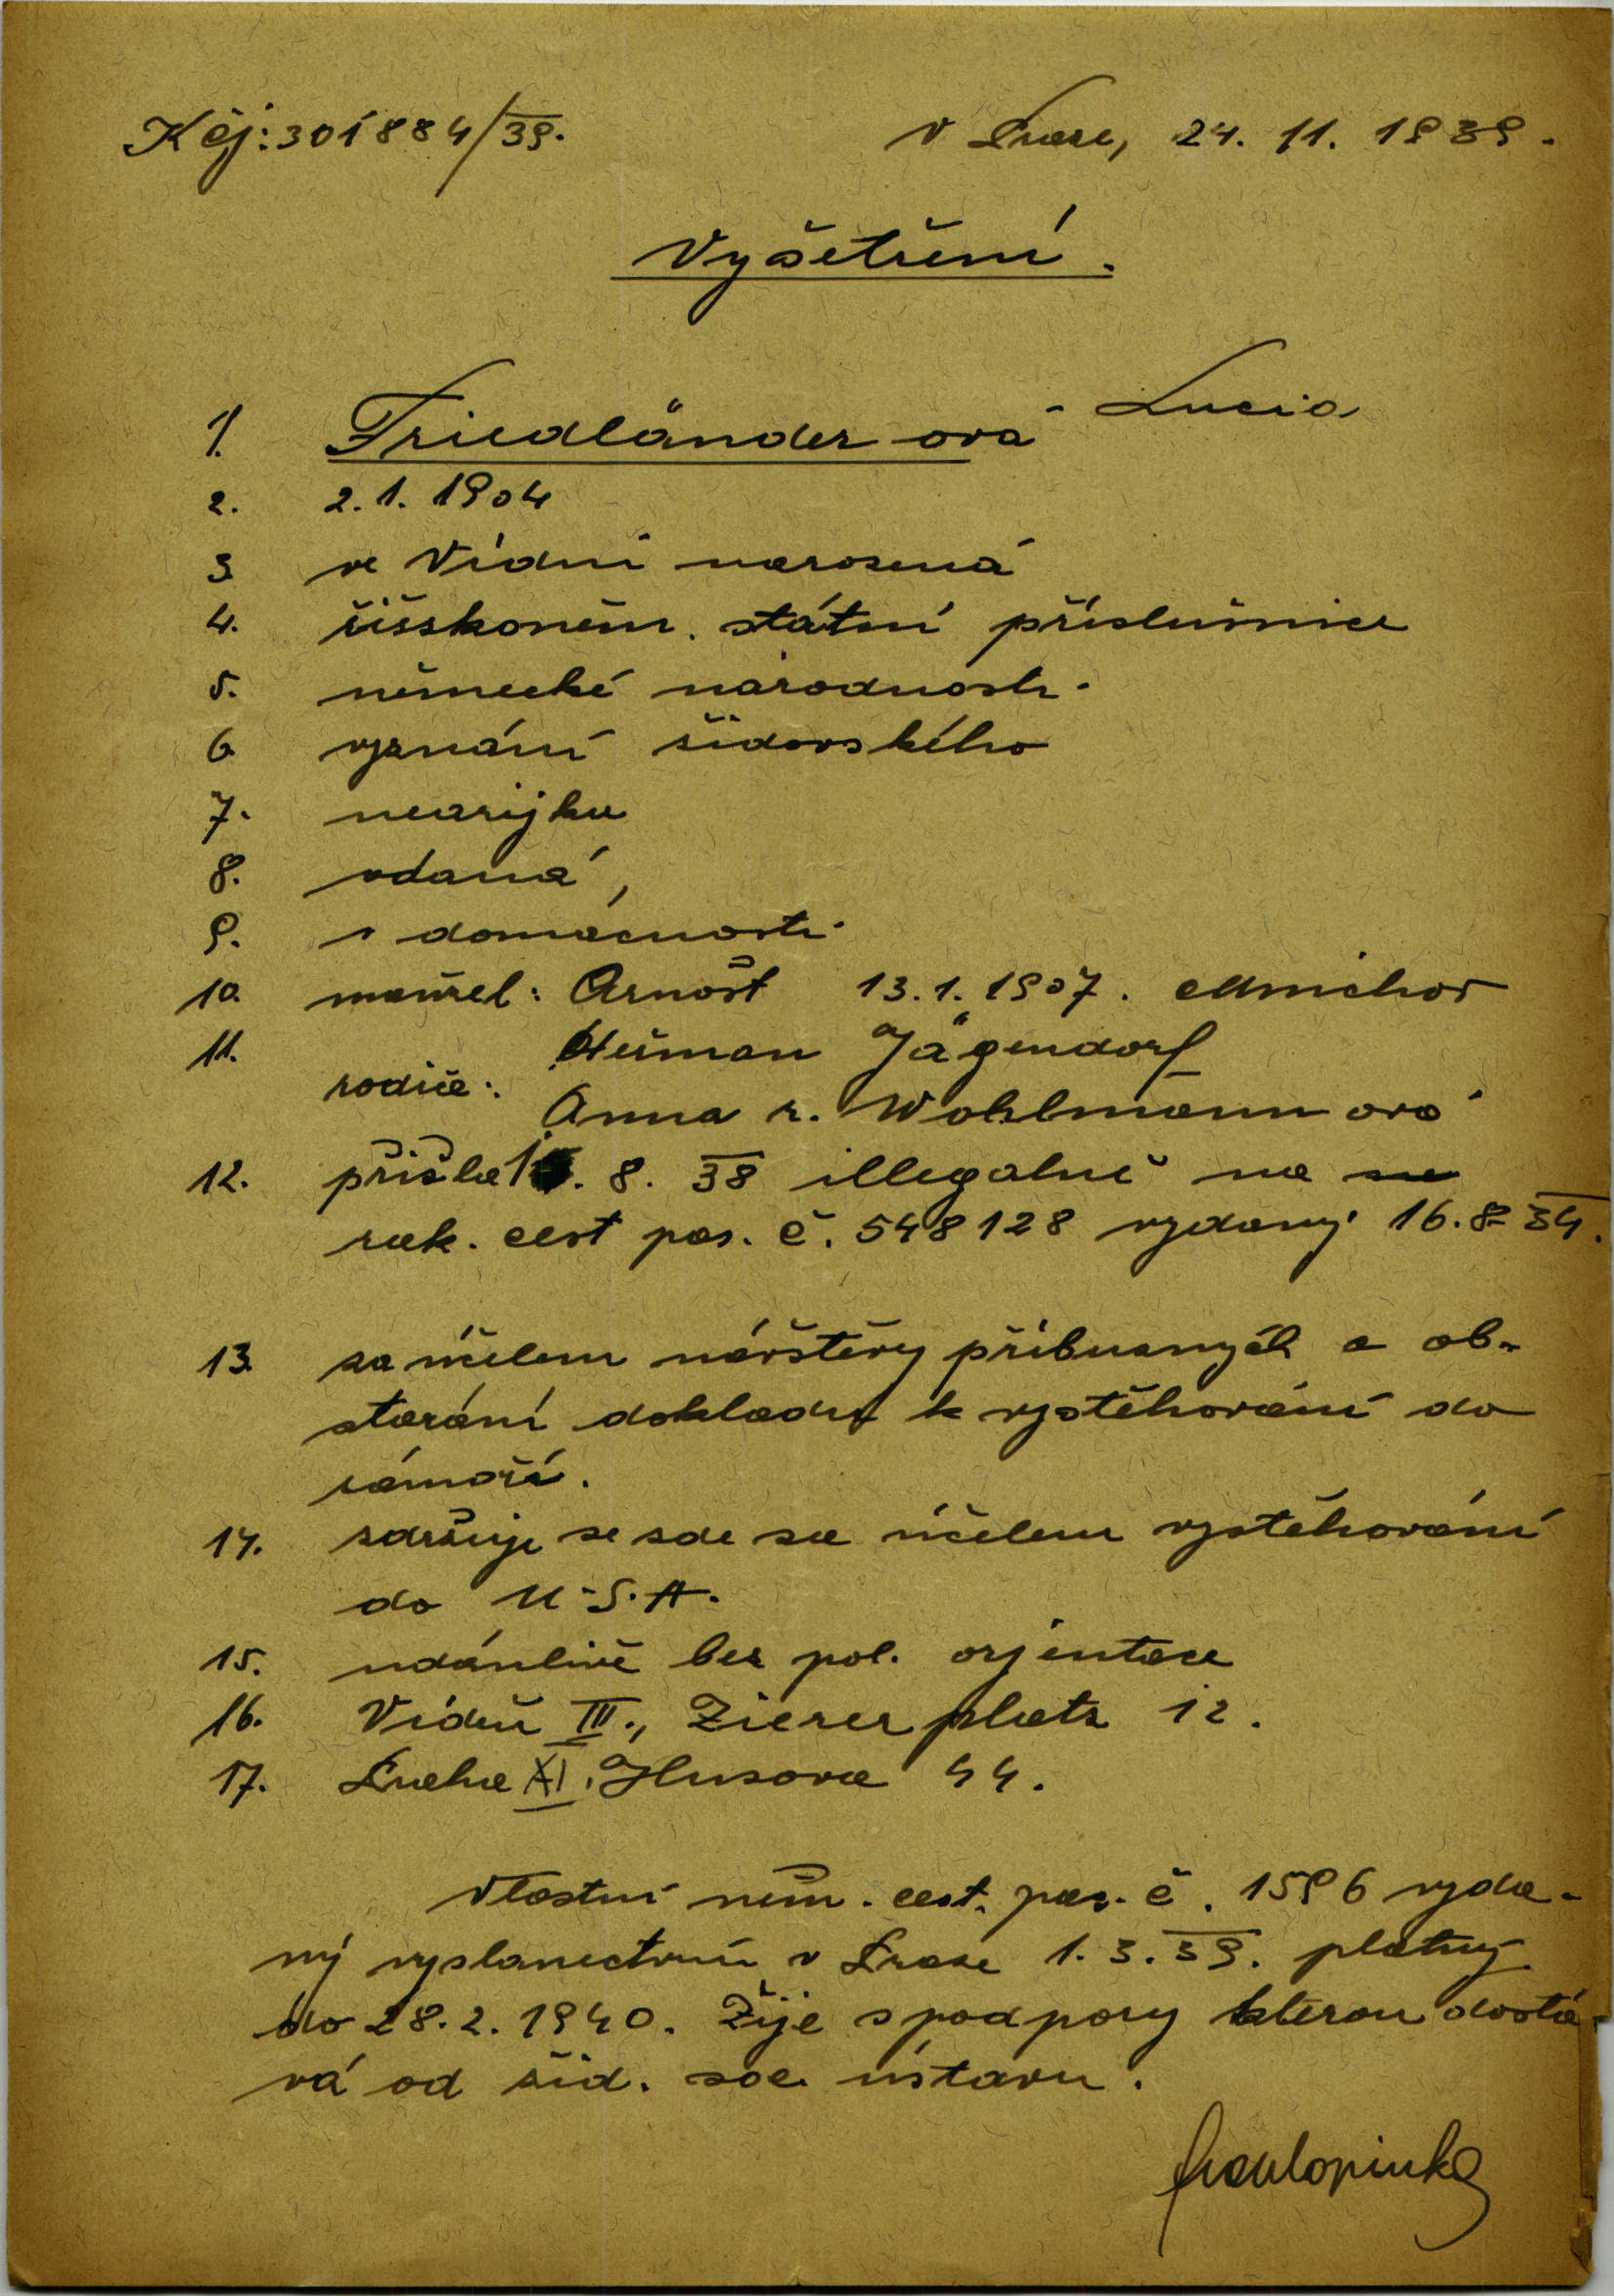 K čj: 301884/39.
v Praze, 24. 11. 1939.
Vyšetření.
1. Friedländerová Lucia
2. 2.1.1904
3. ve Vídni narozená
4. říšskoněm. státní příslušnice
5. německé národnosti.
6. vyznání židovského
7. neárijka
8. vdaná,
9. v domácnosti.
10. manžel: Arnošt 13.1.1907. Mnichov
11. Heřman Jägendorf
rodiče:
Anna r. Wohlmannová
12. přišla 8. 38 illegalně na na
rak. cest pas. č. 548128 vydaný 16.8 34.
13. za účelem návštěvy příbuzných a ob-
starání dokladů k vystěhování do
zámoří.
14. zdržuje se zde za účelem vystěhování
do U.S.A.
15. udánlivě bez pol. orjentace
16. Vídeň III., Ziererplatz 12.
17. Praha XI. Husova 44.
Vlastní něm. cest. pas. č. 1596 vyda-
ný vyslanectvím v Praze 1.3.39. platný
do 28.2.1940. Žije s podpory kterou dostá-
vá od žid. soc. ústavu.